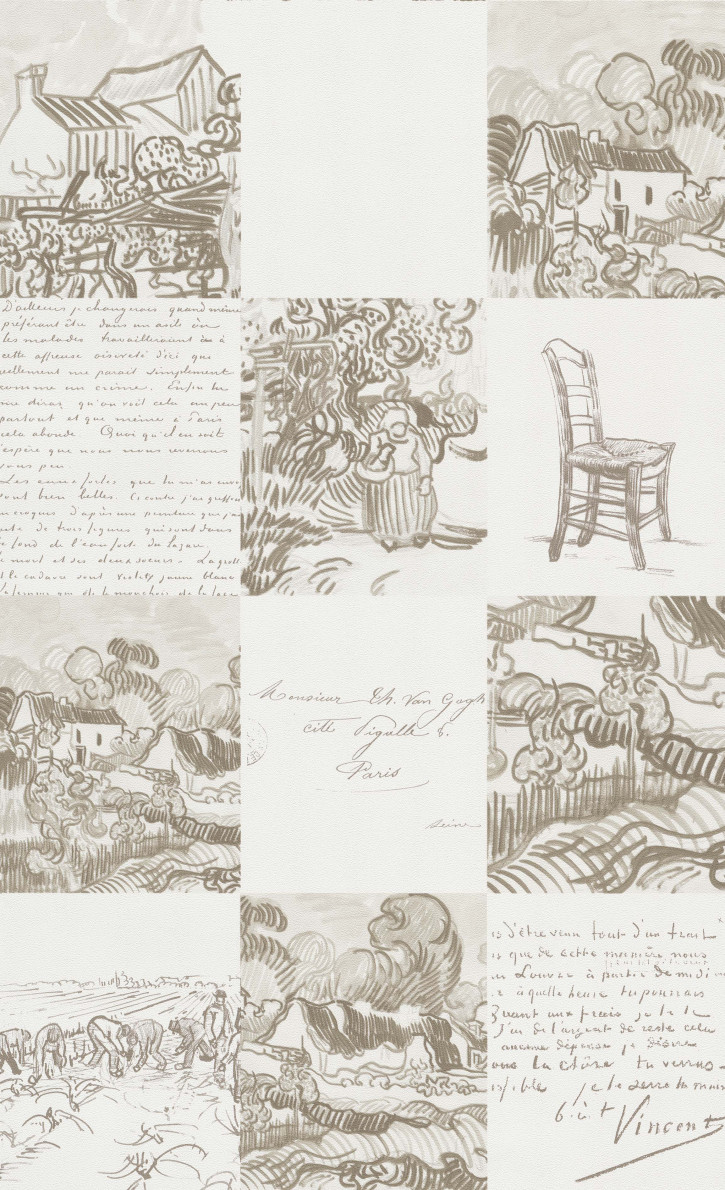 D'ailleurs je changerais quand même
préférant être dans un asile où
les malades travailleraient à
cette affreuse oisiveté d'ici qui
réellement me parait simplement
comme un crime. Enfin tu
me diras qu'on voit cela un peu
partout et que même à Paris
cela abonde Quoi qu'il en soit
j'espère que nous nous reverrons
sous peu
Les eaux fortes que tu m'as envo
sont bien belles. Ci contre j'ai griffon
un croquis d'après une peinture que j'ai
de trois figures qui sont dans
le fond de l'eau forte du Lazare,
le mort et ses deux soeurs. La grott
et le cadavre sont violet, jaune blanc
Monsieur Th. Van Gogh
cité Pigalle 8.
Paris
Seine
is d'être venu tout d'un trait
is que de cette manière nous
au Louvre à partir de midi
à quelle heure tu pourrais
Quant aux frais je te le
J'ai de l'argent de reste cela
aucune dépense je désire
ous la chose tu verras
je te serre la main
b. à. t
Vincent